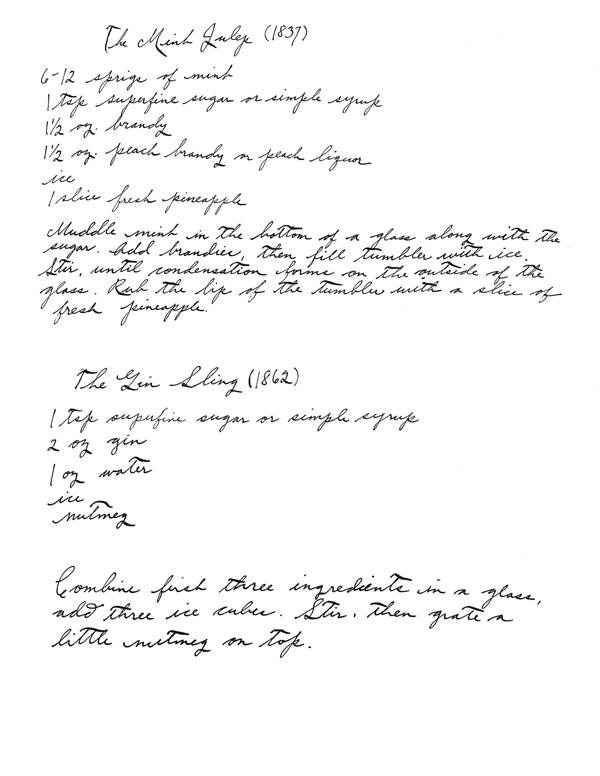 The Mint Julep (1837)
6-12 sprigs of mint
1 tsp superfine sugar or simple syrup
1½ oz. brandy
1½ oz. peach brandy or peach liquor
ice
1 slice fresh pineapple
Muddle mint in the bottom of a glass along with the
sugar. Add brandies, then fill tumbler with ice.
Stir, until condensation forms on the outside of the
glass. Rub the lip of the tumbler with a slice of
fresh pineapple.
The Gin Sling (1862)
1 tsp superfine sugar or simple syrup
2 oz gin
1 oz water
ice
nutmeg
Combine first three ingredients in a glass,
add three ice cubes. Stir, then grate a
little nutmeg on top.